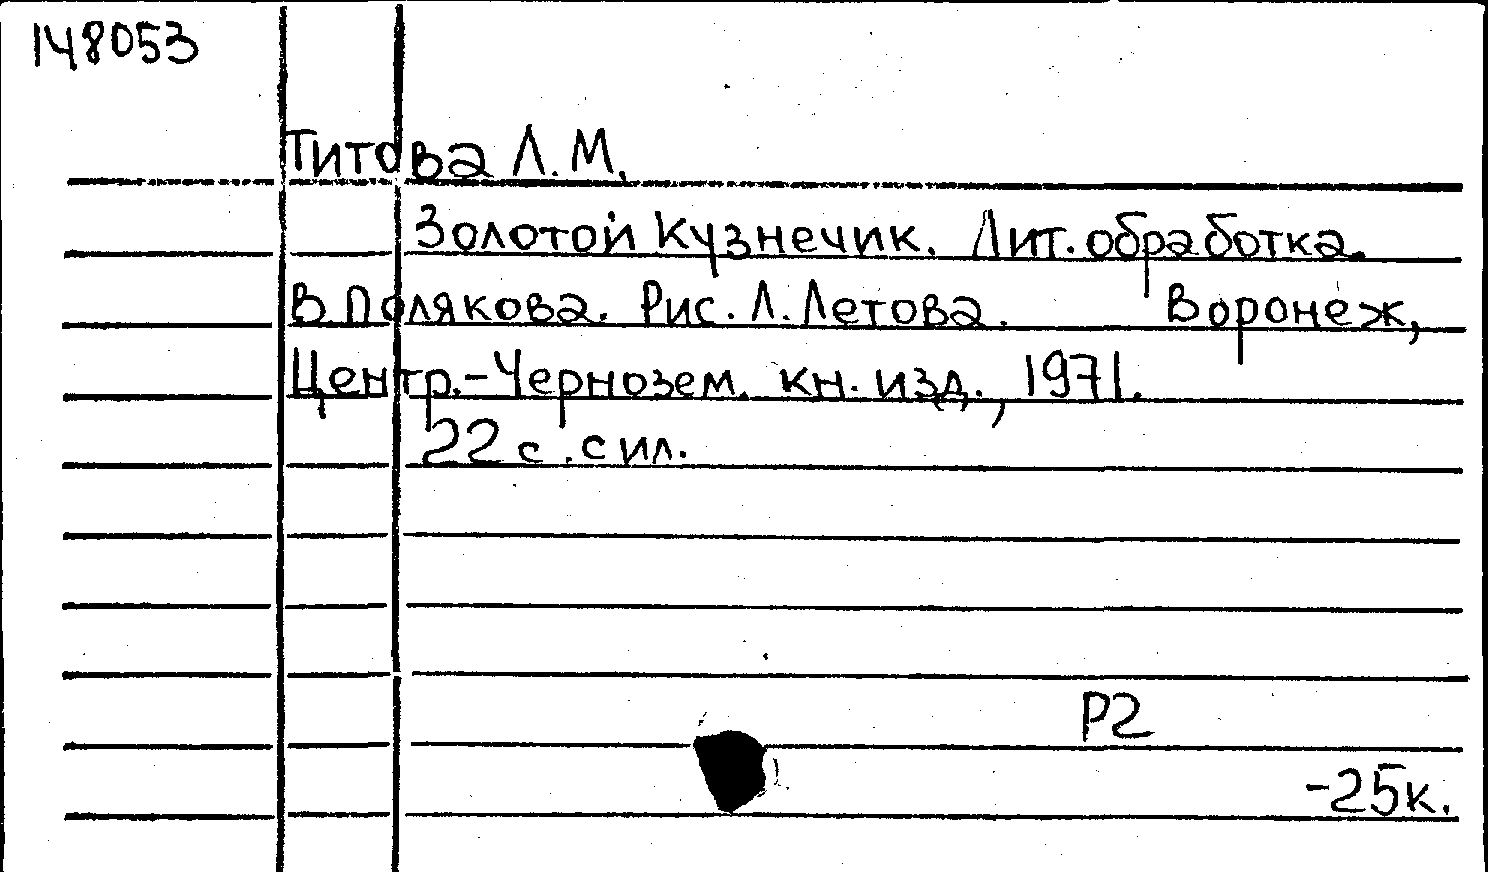 148053
Титова Л.М.
Золотой Кузнечик. Лит. обработка.
В Полякова. Рис. Л. Летова. Воронеж,
Центр.-Чернозем. кн. изд., 1971.
22 с. с ил.
Р2
-25к.